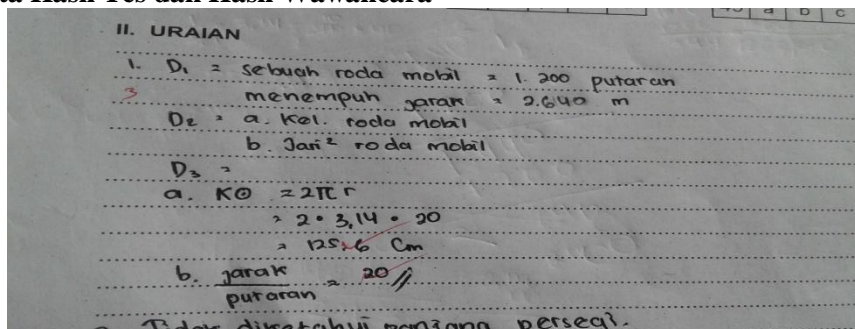 ta Hasil Tes dan Hasil Wawancara
d D C
II. URAIAN
1. D₁ = sebuah roda mobil = 1.200 putaran
3 menempuh jarak = 2.640 m
D₂ = a. Kel. roda mobil
b. Jari² roda mobil
D₃ =
a. K⊙ = 2πr
= 2 • 3,14 • 20
= 125,6 Cm
b. jarak
putaran = 20 //
Tidak diketahui panjang persegi.